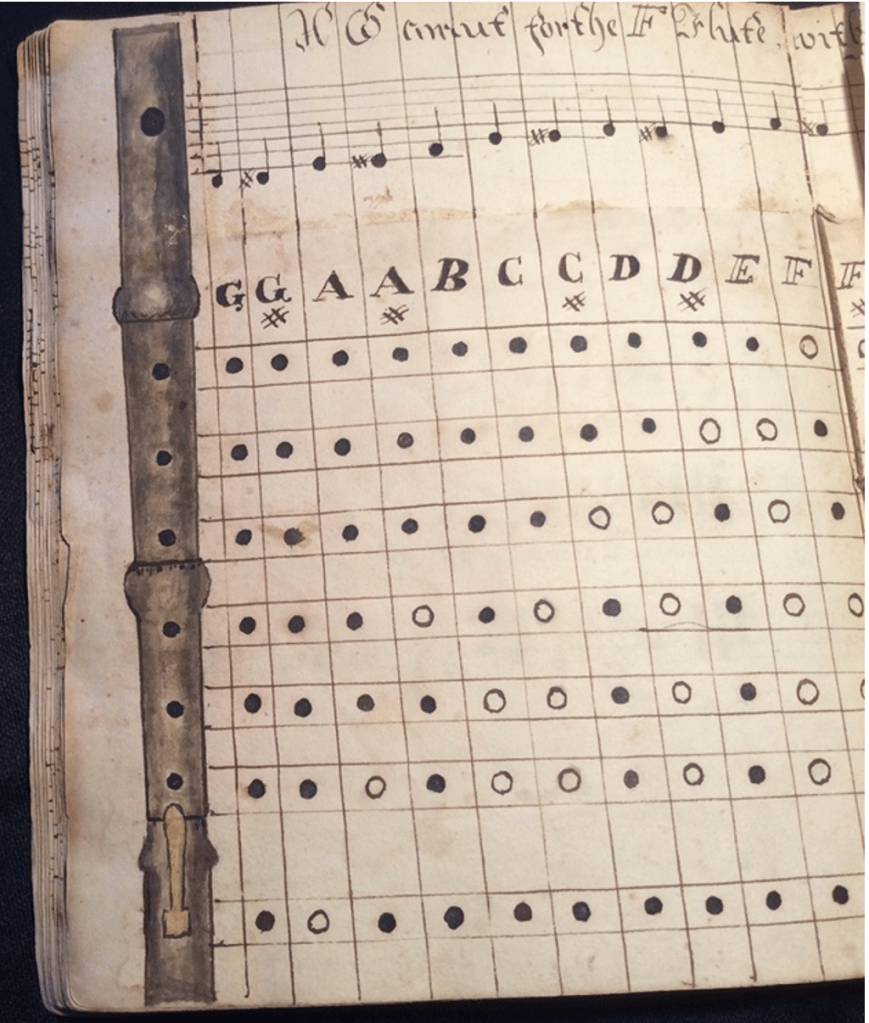 A Gamut for the F Flute, with
G G A A B C C D D E F F